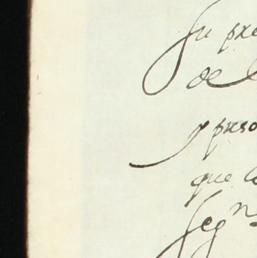 Su pre
de l
y preso
que l
Segn